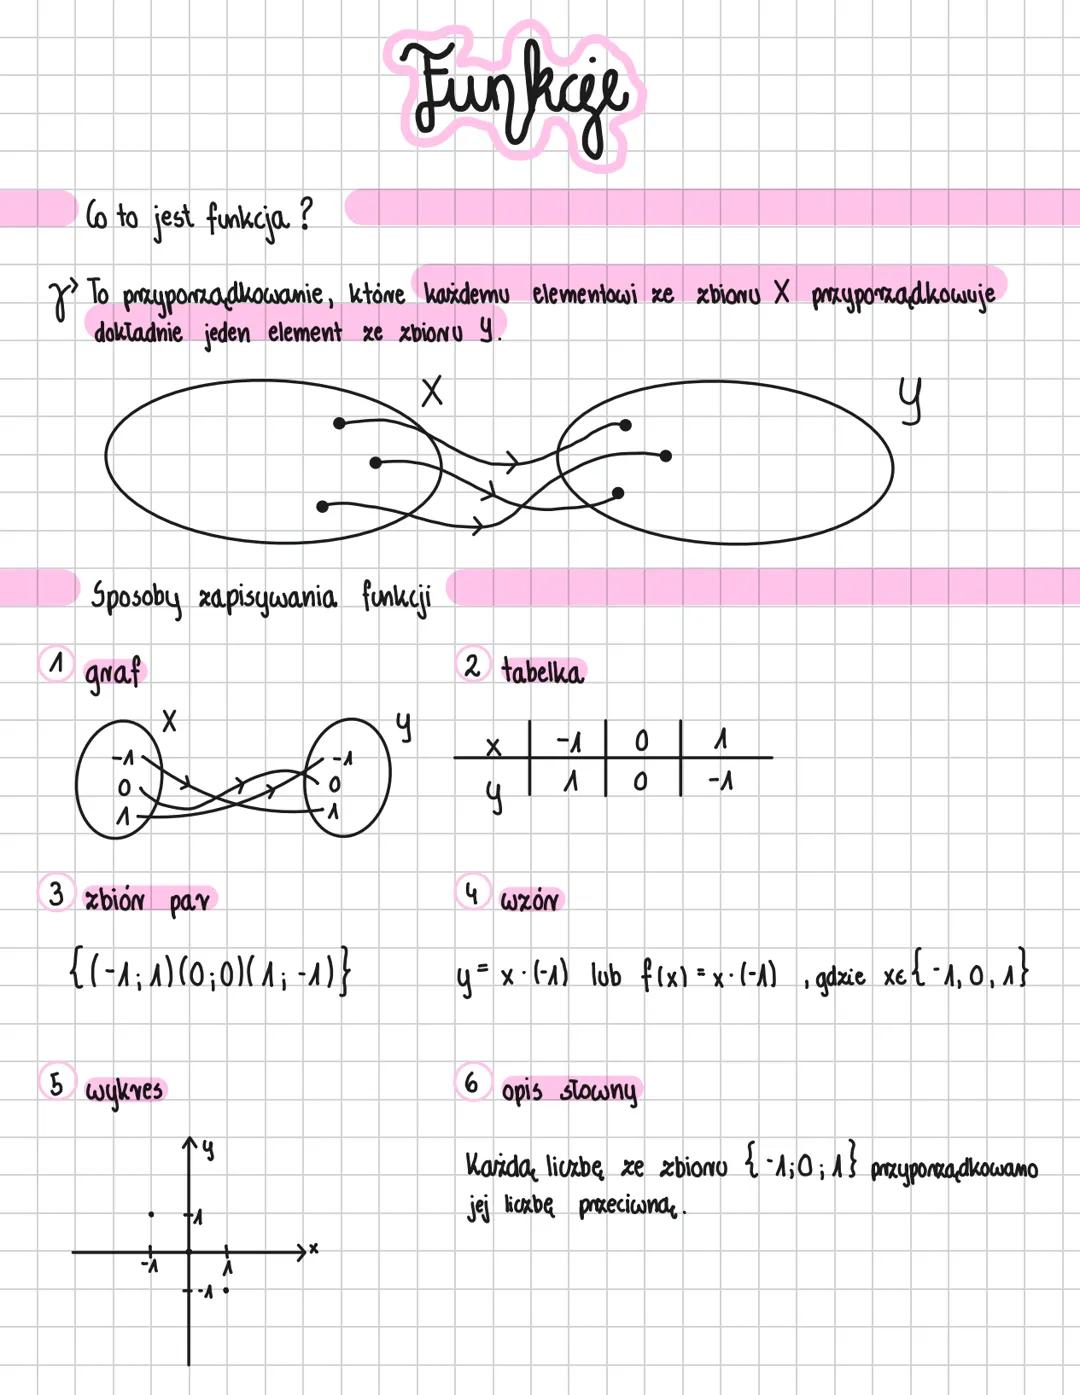 Funkcje
Co to jest funkcja?
To przyporządkowanie, które każdemu elementowi ze zbioru X przyporządkowuje
dokładnie jeden element ze zbioru y.
X
y
Sposoby zapisywania funkcji
1 graf
X
y
-1
0
1
-1
0
1
2 tabelka
x -1 0 1
y 1 0 -1
3 zbiór par
{(-1;1)(0;0)(1;-1)}
4 wzór
y = x·(-1) lub f(x) = x·(-1) , gdzie x∈{-1,0,1}
5 wykres
y
1
x
-1
1
-1
6 opis słowny
Każdą liczbę ze zbioru {-1;0;1} przyporządkowano
jej liczbę przeciwną.